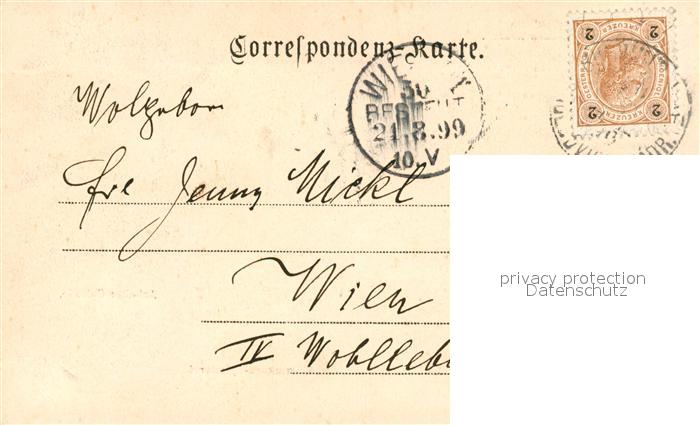 Correspondenz-Karte.
WIEN
50
BESTELLT
21.8.99
10.V
2
2
2
2
KREUZER
KREUZER
Wolgebor
Frl Jenny Nickl
Wien
IV Wohlleb
privacy protection
Datenschutz